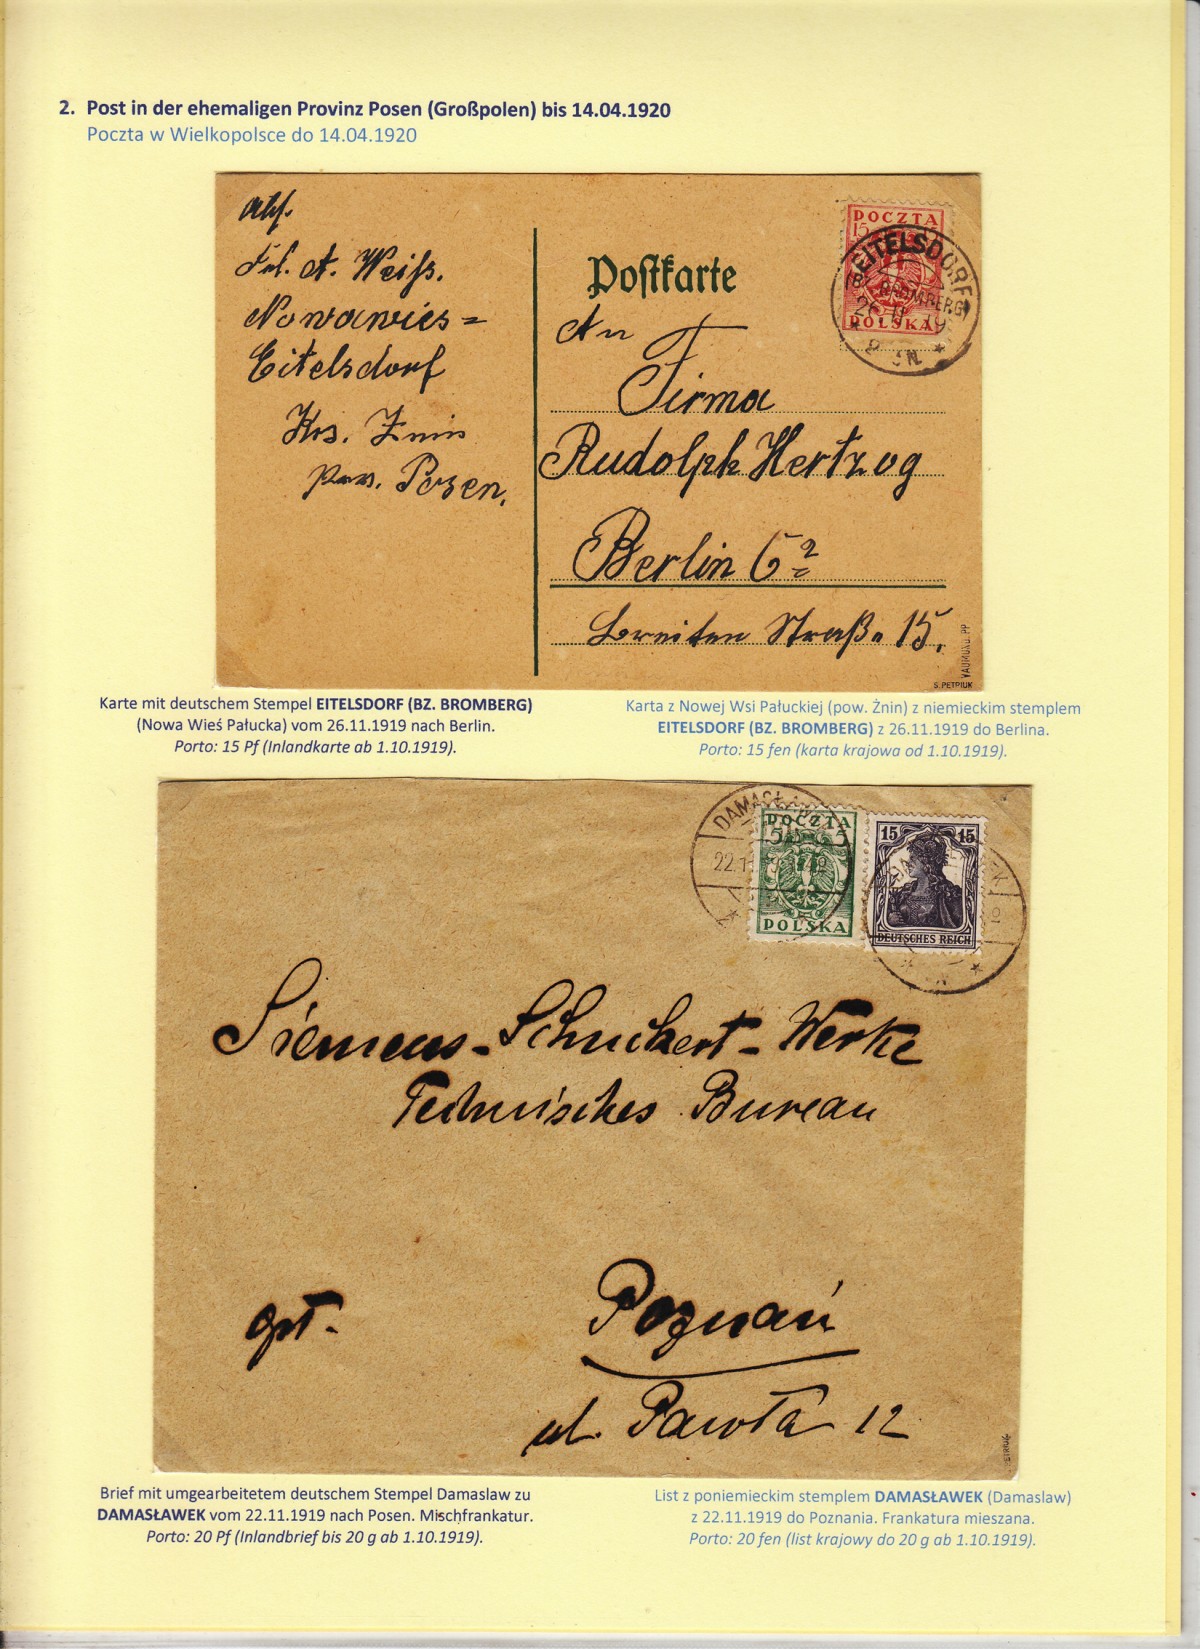 2. Post in der ehemaligen Provinz Posen (Großpolen) bis 14.04.1920
Poczta w Wielkopolsce do 14.04.1920
Abs.
Frl. A. Weiß.
Nowawies=
Eitelsdorf
Krs. Znin
Prov. Posen.
Postkarte
An
Firma
Rudolph Hertzog
Berlin C2
Breiten Straße 15.
POCZTA
15
POLSKA
EITELSDORF
(Bz. BROMBERG)
26.11.19
8-9N.
S. PETRIUK
Karte mit deutschem Stempel EITELSDORF (BZ. BROMBERG)
(Nowa Wieś Pałucka) vom 26.11.1919 nach Berlin.
Porto: 15 Pf (Inlandkarte ab 1.10.1919).
Karta z Nowej Wsi Pałuckiej (pow. Żnin) z niemieckim stemplem
EITELSDORF (BZ. BROMBERG) z 26.11.1919 do Berlina.
Porto: 15 fen (karta krajowa od 1.10.1919).
POCZTA
5 5
POLSKA
15 15
DEUTSCHES REICH
Siemens-Schuckert-Werke
Technisches Bureau
Poznań
ul. Pawła 12
Brief mit umgearbeitetem deutschem Stempel Damaslaw zu
DAMASŁAWEK vom 22.11.1919 nach Posen. Mischfrankatur.
Porto: 20 Pf (Inlandbrief bis 20 g ab 1.10.1919).
List z poniemieckim stemplem DAMASŁAWEK (Damaslaw)
z 22.11.1919 do Poznania. Frankatura mieszana.
Porto: 20 fen (list krajowy do 20 g ab 1.10.1919).